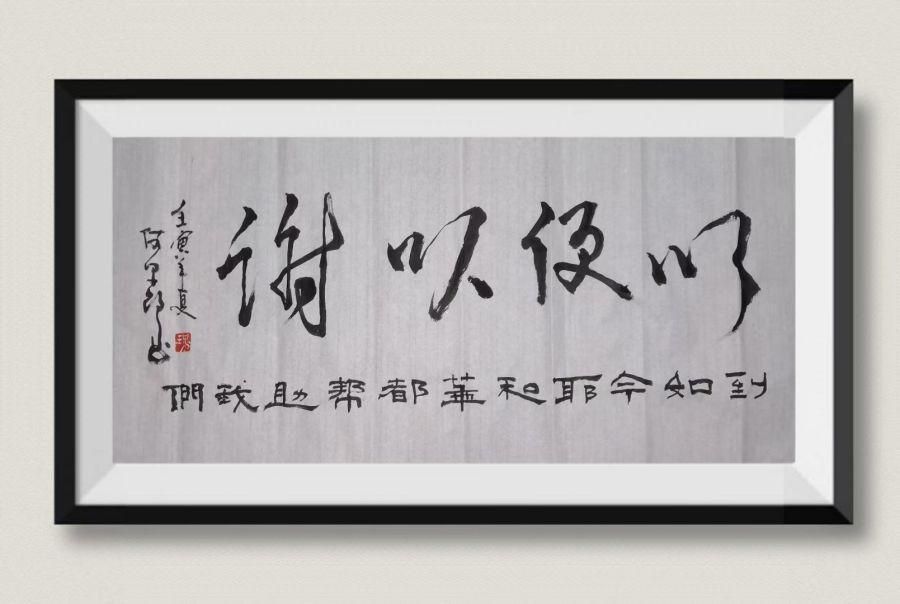 以便以谢
到如今耶和華都帮助我們
壬寅年夏
阿里郎书